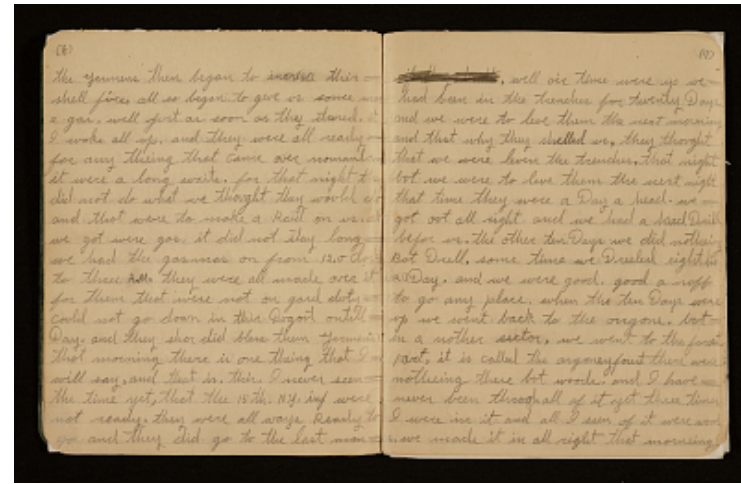 (8)
the germens then began to increse thir
shell fire. all so began to give us somee
e gas. well just as soon as they stared. it
I woke all up. and they were all ready
for any theing that came over nomans
it were a long waite. for that night t
did not do what we thought thay would do
and that were to make a Raid on us. al
we got were gas. it did not stay long
we had the gasmas on from 12.0 clo
to three A.M. they were all made over it
for them that were not on gard doty
could not go down in thir Dogout ontill
Day. and they shor did blase them germens
that morning there is one theing that I
will say. and that is. this. I never seen
the time yet, that the 15th. N.Y. inf were
not ready. they were all ways Ready to
go and they did go to the last man
(9)
, well oir time were up we
had been in the trenches for twenty Days
and we were to leve them the next morning
and that why they shelled us, they thought
that we were leven the trenches, that night
bot we were to leve them the next night
that time they were a Day a head. we
got oot all right and we had a hard Drill
befor us. the other ten Days we did notheing
Bot Drill, some time we Dreeled eight hs
a Day, and we were good. good a noff
to go any place. when the ten Days were
op we went back to the oregone. bot
in a nother sector, we went to the
part, it is called the argoney there were
notheing there bot woods. and I have
never been throgh all of it yet three times
I were in it and all I seen of it were wood
we made it in all right that morneing